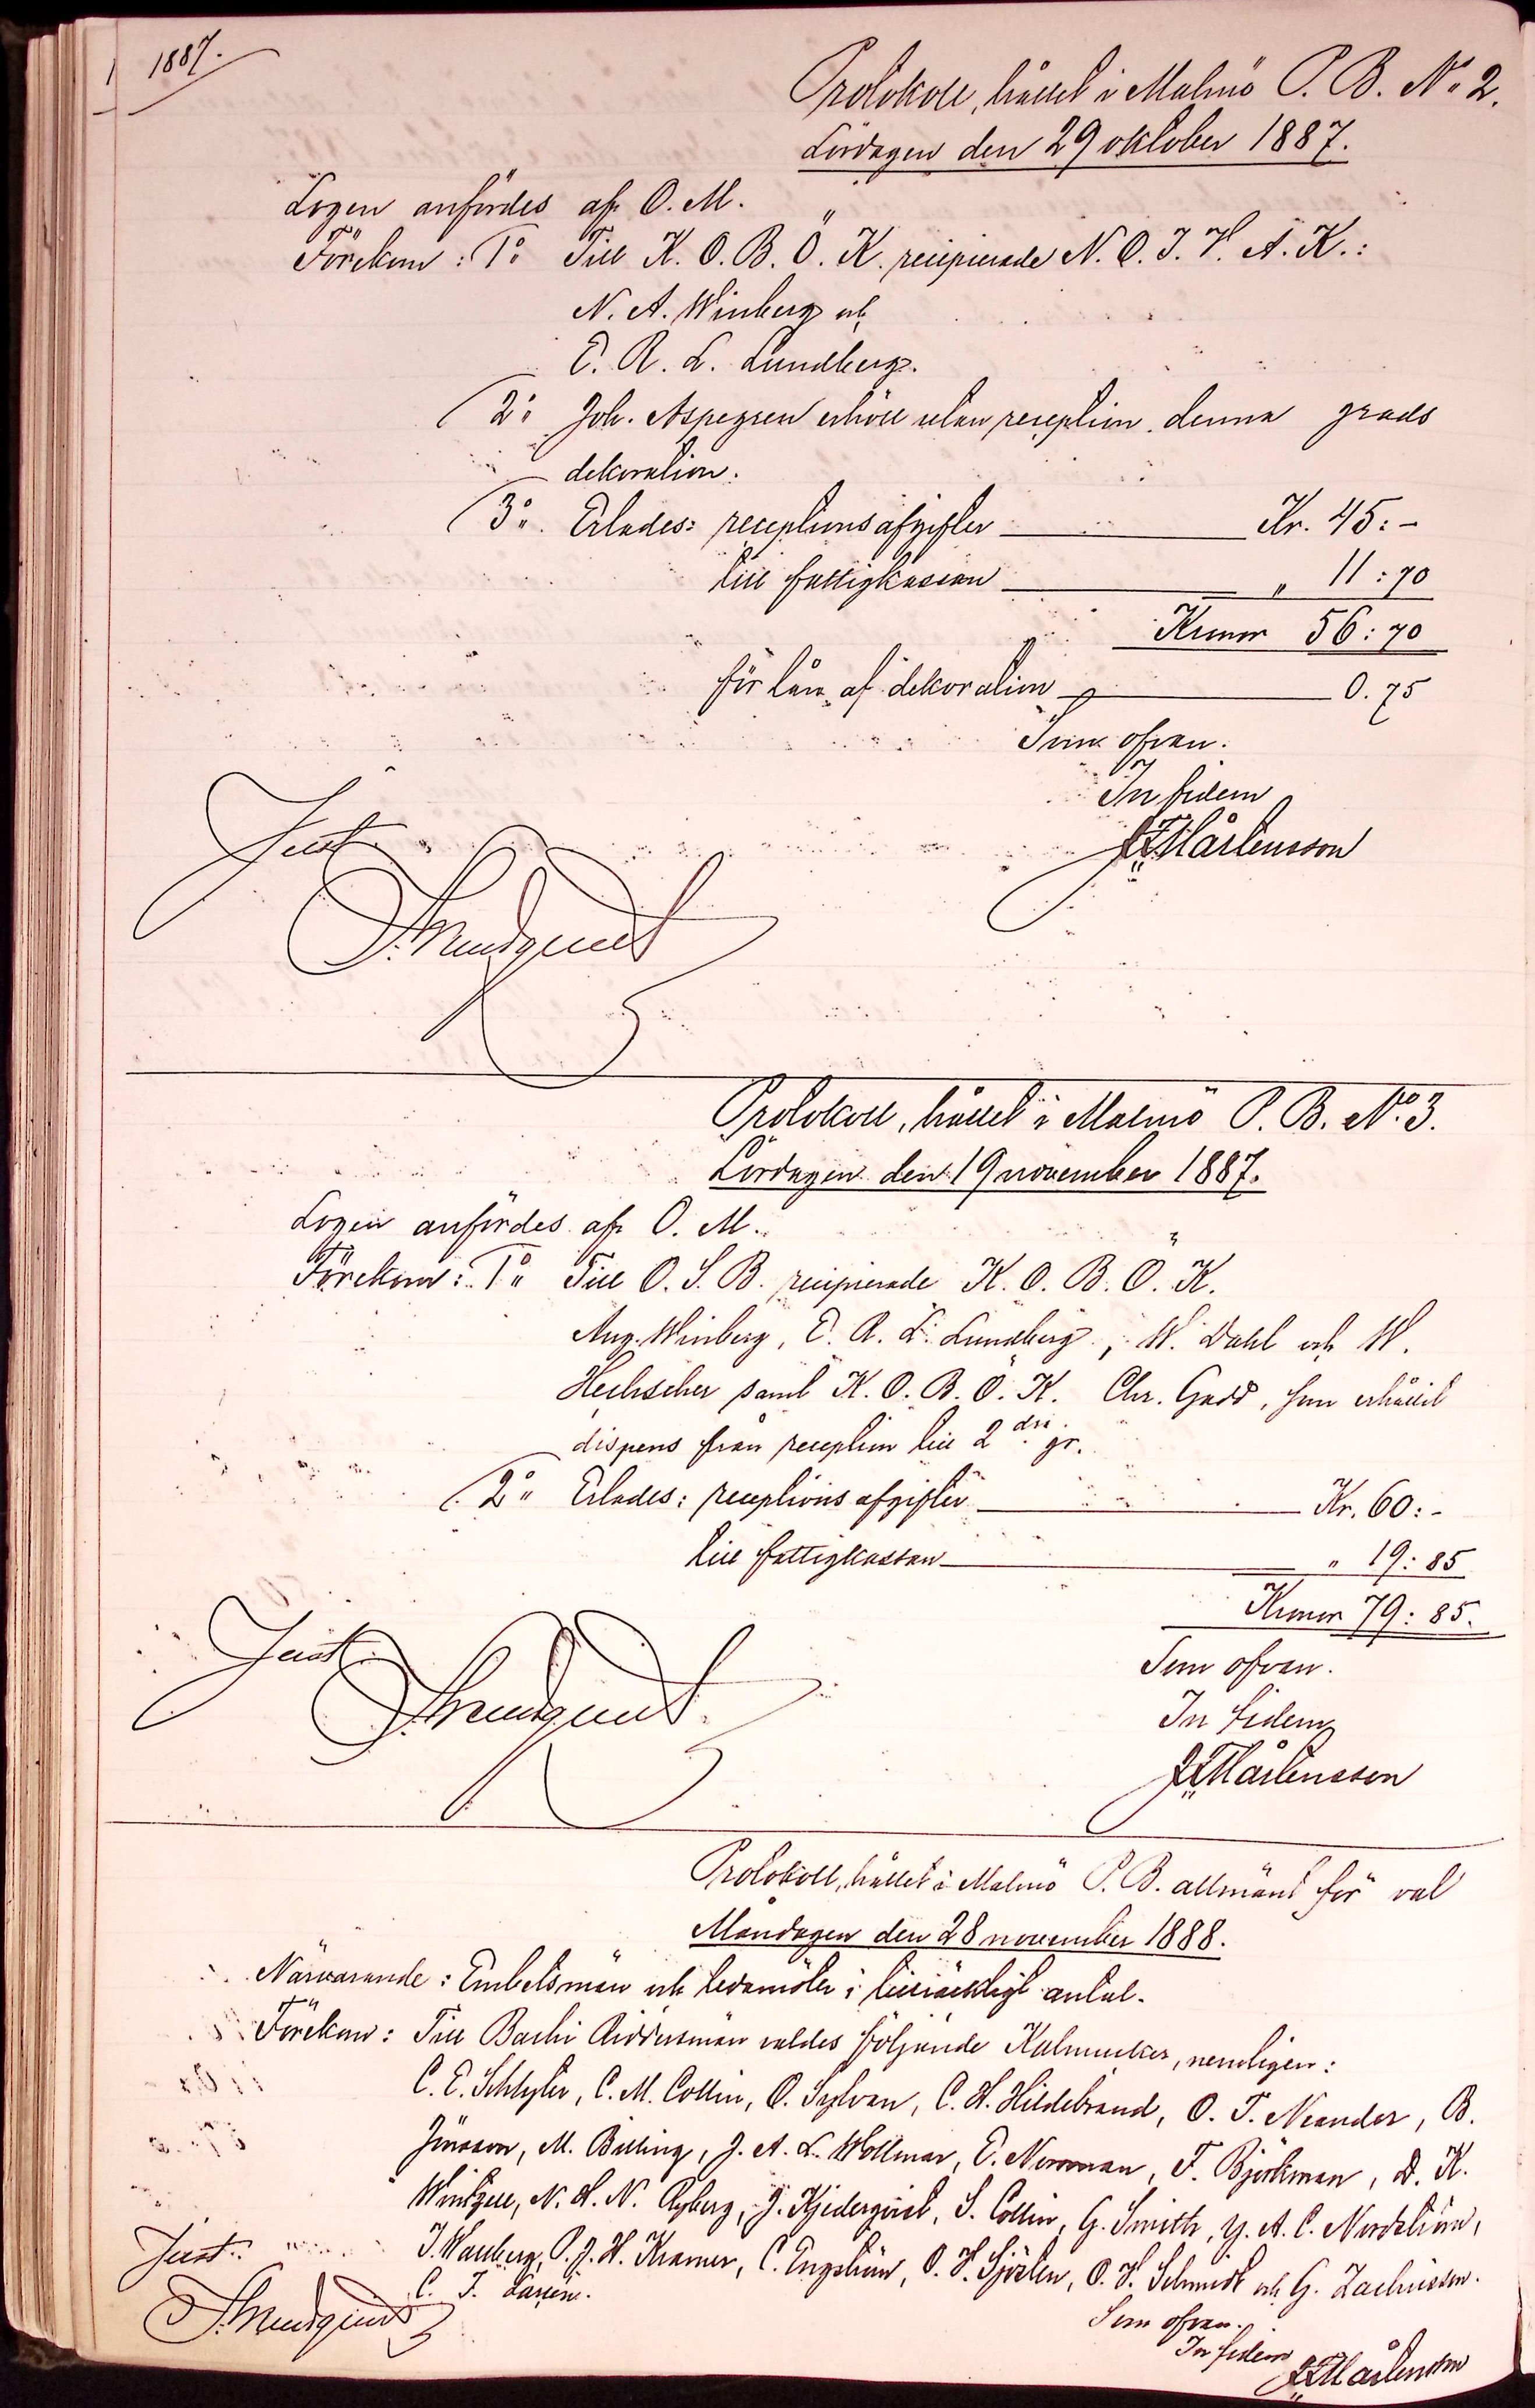 1887.
Protokoll, hållet i Malmö P. B. No 2.
Lördagen den 29 oktober 1887.
Logen anfördes af O. M.
Förekom: 1o Till K. O. B. Ö. K. recipierade N. O. I. V. A. K.:
N. A. Winberg och
E. R. L. Lundberg.
2o Joh. Aspegren erhöll utan reception denna grads
dekoration.
3o. Erlades: receptionsafgifter Kr. 45:-
till fattigkassan " 11:70
Kronor 56:70
för lån af dekoration 0.75
Som ofvan.
In fidem
Mårtensson
Just.
Protokoll, hållet i Malmö P. B. No. 3.
Lördagen den 19 november 1887.
Logen anfördes af O. M.
Förekom: 1o Till O. S. B. recipierade K. O. B. Ö. K.
Aug. Winberg, E. R. L. Lundberg, W. Dahl och W.
Heckscher samt K. O. B. Ö. K. Chr. Gadd, som erhållit
dispens från reception till 2dra gr.
2o Erlades: receptionsafgifter Kr. 60:-
till fattigkassan " 19:85
Kronor 79:85.
Som ofvan.
In fidem
Mårtensson
Just.
Protokoll, hållet i Malmö P. B. allmänt för val
Måndagen den 28 november 1888.
Närvarande: Embetsmän och ledamöter i tillräckligt antal.
Förekom: Till Bachi Riddersmän valdes följande Kalmucker, nemligen:
C. E. Schlyter, C. M. Collin, O. Sylvan, C. H. Hildebrand, O. T. Neander, B.
Jönsson, M. Billing, J. A. L. Wollmar, E. Norrman, F. Björkman, D. K.
Wintzell, N. H. N. Ryberg, J. Kjederqvist, S. Collin, G. Smith, Y. A. C. Nordström,
J. Wanberg, P. J. H. Kramer, C. Engström, O. F. Sjösten, O. F. Schmidt och G. Zachrisson.
C. F. Larsen.
Som ofvan.
Just.
In fidem
Mårtensson